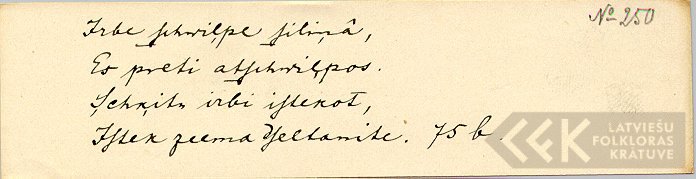 № 250
Irbe ſchwilpe ſiliņâ,
Es preti atſchwilpos.
Schķitu irbi iſtekot,
Iſtek zeema ſeltanite. 75 b
LATVIEŠU
FOLKLORAS
KRĀTUVE